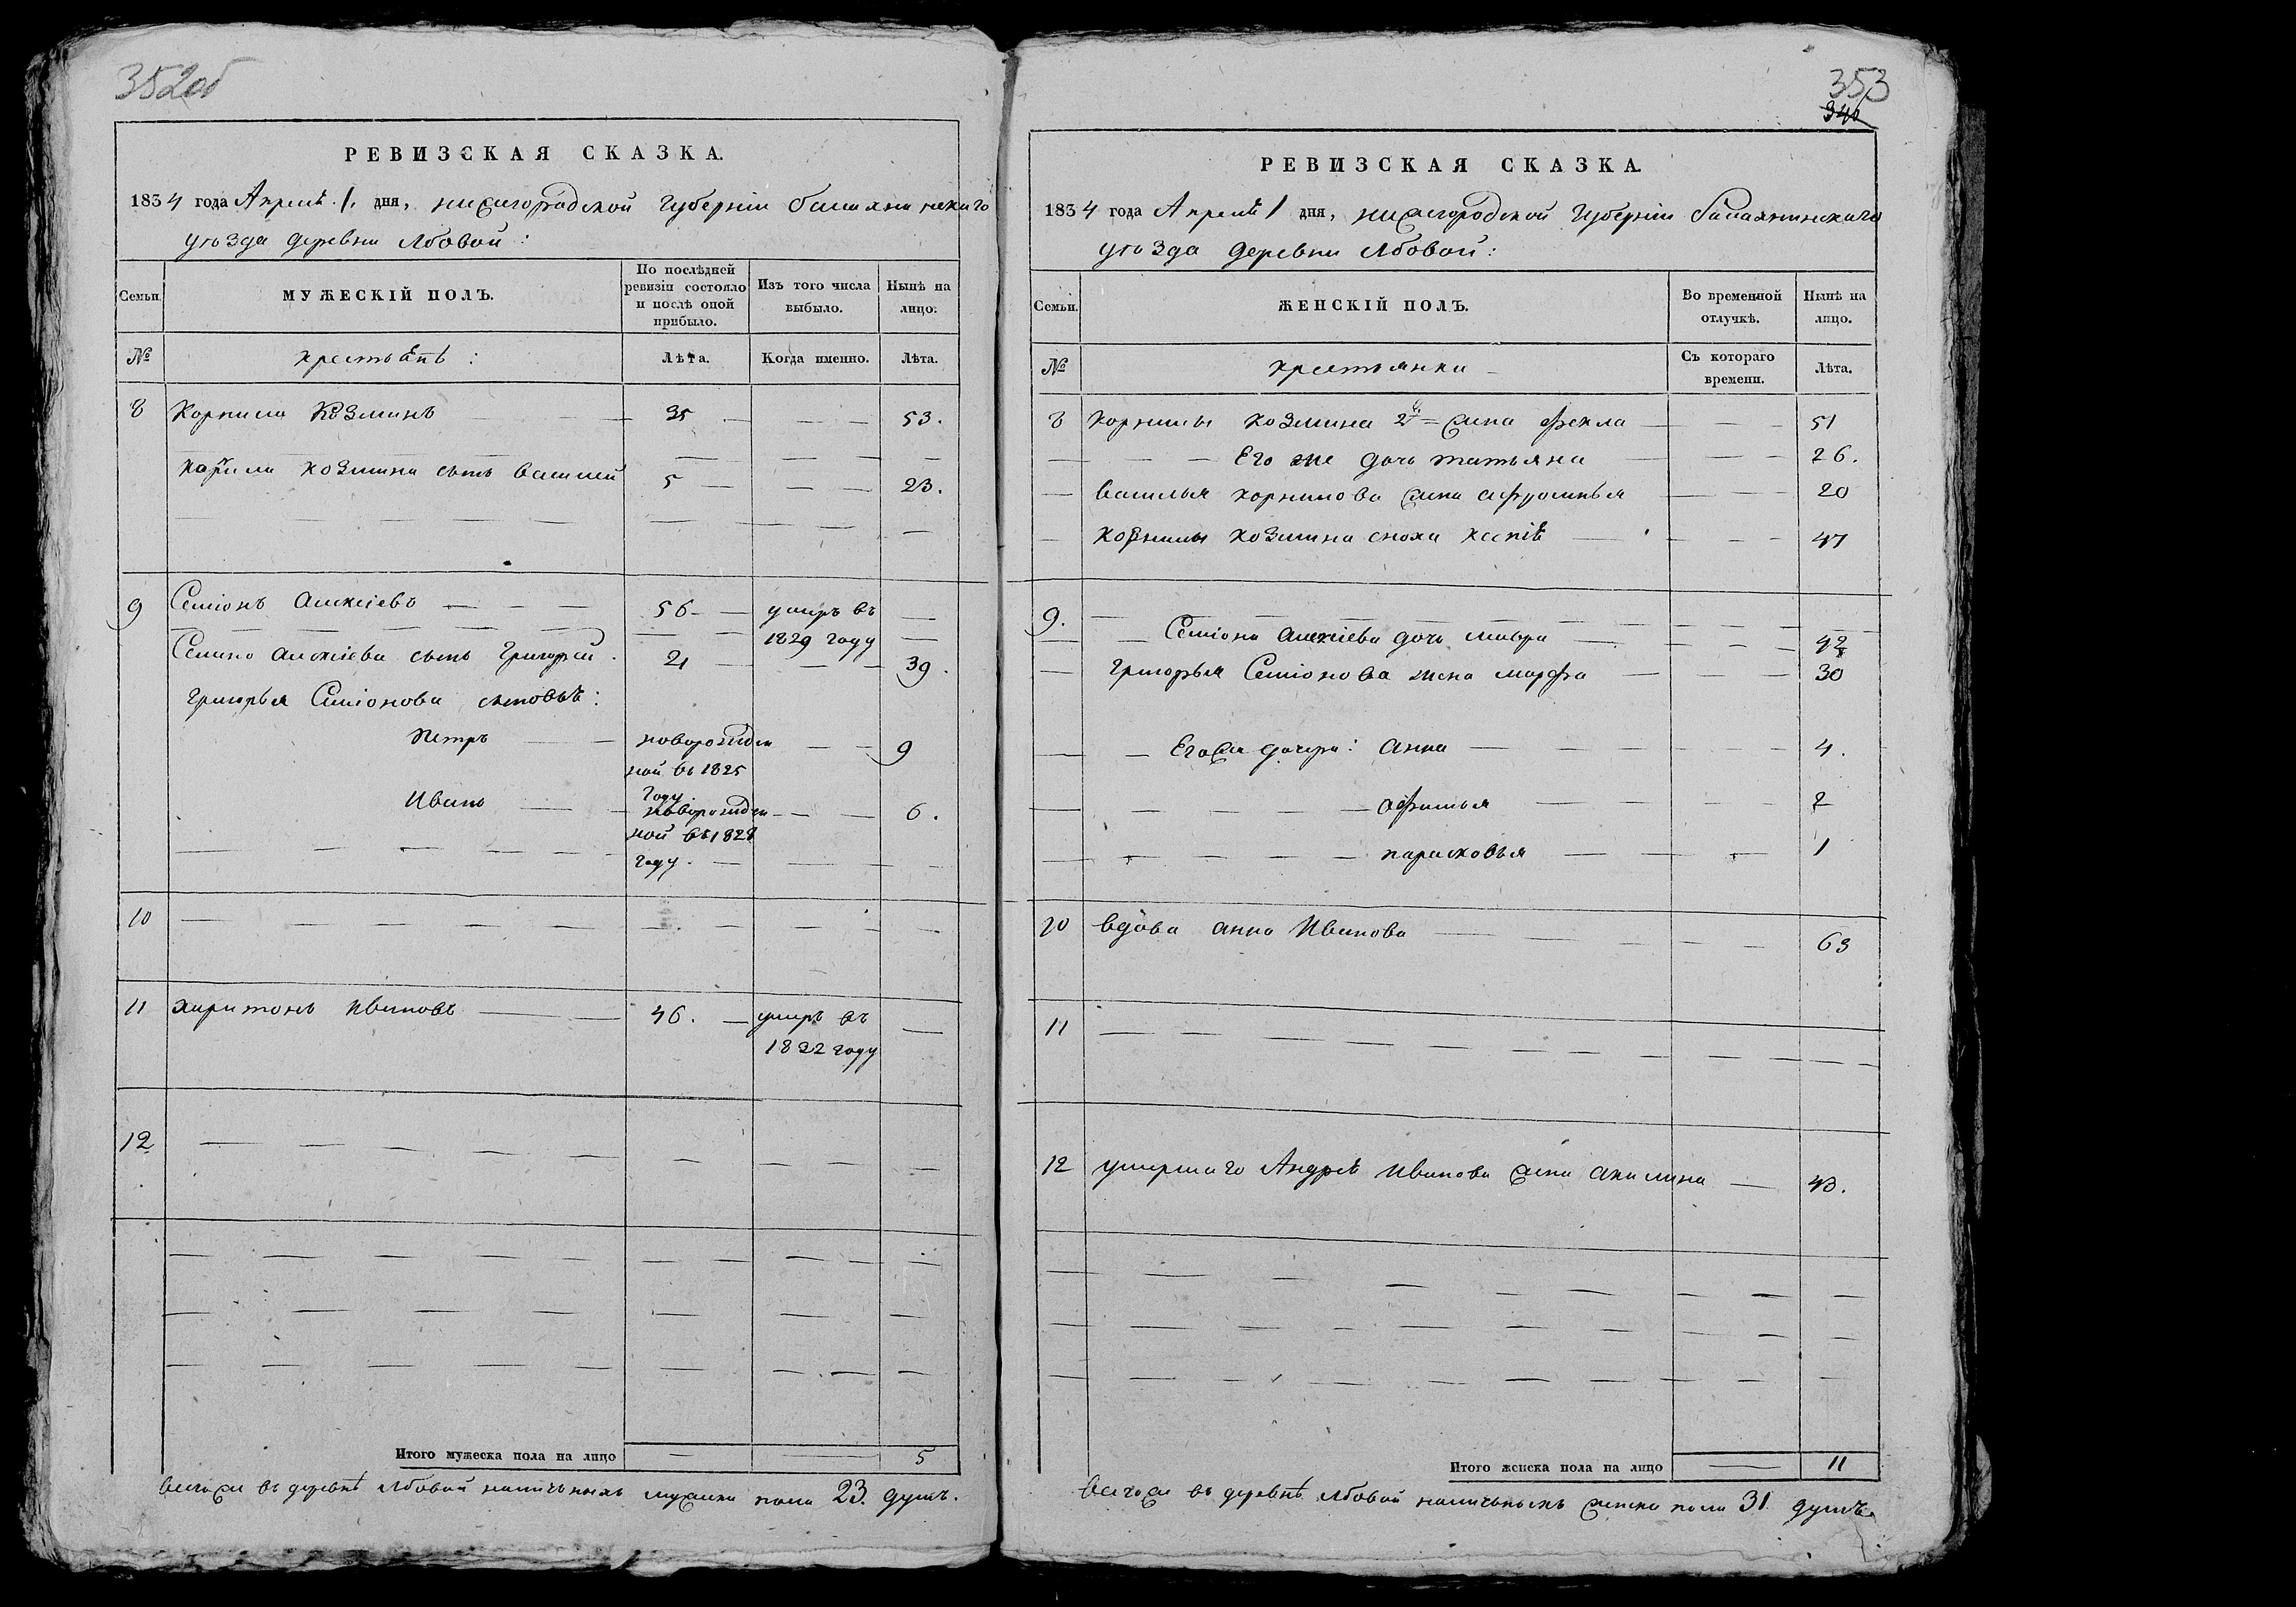 352об
РЕВИЗСКАЯ СКАЗКА.
1834 года Апрелѣ 1. дня, нижегородской губерніи балахнинскаго
уѣзда деревни Лбовой:
Семьи.
МУЖЕСКІЙ ПОЛЪ.
По послѣдней ревизіи состояло и послѣ оной прибыло.
Изъ того числа выбыло.
Нынѣ на лицо.
№
Лѣта.
Когда именно.
Лѣта.
8 Корнила Козминъ 35 53.
Корнила Козмина сынъ василей 5 23.
9 Семіонъ Алексіевъ 56 умеръ въ
1829 году
Семіона алексіева сынъ Григорей 21 39.
Григорья Семіонова сыновьѣ:
Петръ новорожден 9
ной въ 1825
году
Иванъ новорожден 6.
ной въ 1828
году.
10
11 харитонъ Ивановъ 46. умеръ въ
1832 году
12
Итого мужеска пола на лицо 5
всегоже въ деревнѣ Лбовой наличныхъ мужска пола 23. душъ.
353
340
РЕВИЗСКАЯ СКАЗКА.
1834 года Апрелѣ 1 дня, нижегородской губерніи балахнинскаго
уѣзда деревни Лбовой:
Семьи.
ЖЕНСКІЙ ПОЛЪ.
Во временной отлучкѣ.
Нынѣ на лицо.
№
крестьянки
Съ котораго времени.
Лѣта.
8 Корнилы Козмина 2я жена фекла 51
Его же дочь татьяна 26.
василья корнилова жена афросинья 20
Корнилы Козмина сноха 47
9. Семіона Алексіева дочь мавра 42
Григорья Семіонова жена марфа 30
Егоже дочери: Анна 4.
афимья 2
парасковья 1
10 вдова анна Иванова 63
11
12 умершаго Андрѣя Иванова жена акилина 43.
Итого женска пола на лицо 11
всегоже въ деревнѣ Лбовой наличныхъ женска пола 31 душъ.